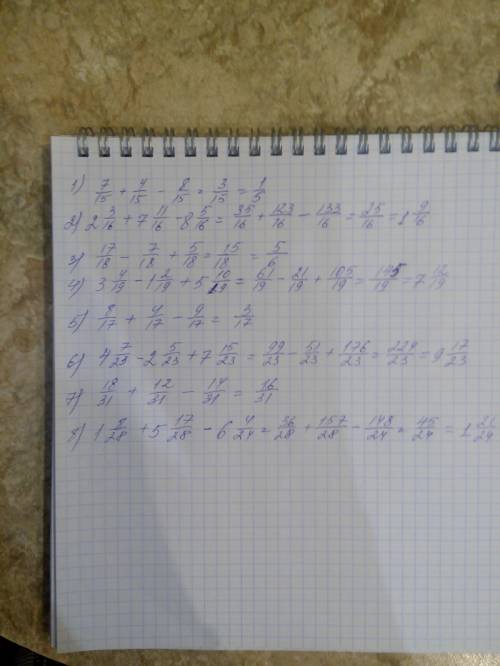 1) 7/15 + 4/15 - 8/15 = 3/15 = 1/5
2) 2 3/16 + 7 11/16 - 8 5/16 = 35/16 + 123/16 - 133/16 = 25/16 = 1 9/16
3) 17/18 - 7/18 + 5/18 = 15/18 = 5/6
4) 3 4/19 - 1 2/19 + 5 10/19 = 61/19 - 21/19 + 105/19 = 145/19 = 7 12/19
5) 8/17 + 4/17 - 9/17 = 3/17
6) 4 7/23 - 2 5/23 + 7 15/23 = 99/23 - 51/23 + 176/23 = 224/23 = 9 17/23
7) 18/31 + 12/31 - 14/31 = 16/31
8) 1 8/28 + 5 17/28 - 6 4/24 = 36/28 + 157/28 - 148/24 = 45/24 = 1 21/24